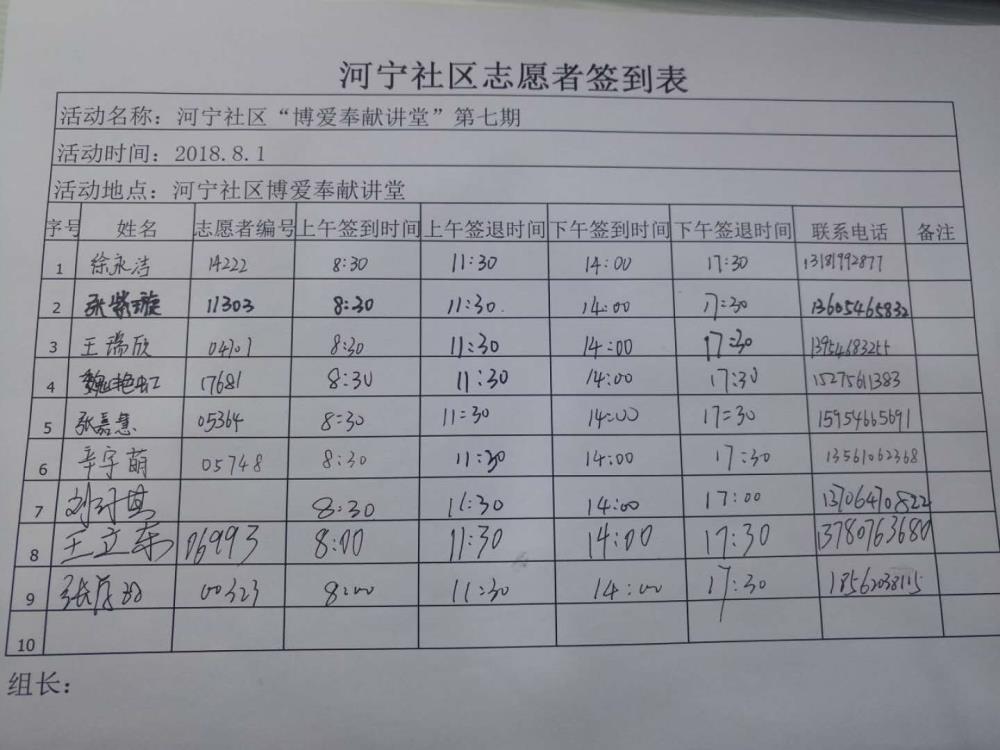 河宁社区志愿者签到表
活动名称：河宁社区“博爱奉献讲堂”第七期
活动时间：2018.8.1
活动地点：河宁社区博爱奉献讲堂
序号 姓名 志愿者编号 上午签到时间 上午签退时间 下午签到时间 下午签退时间 联系电话 备注
1 徐永洁 14222 8:30 11:30 14:00 17:30 13181992877
2 张紫璇 11303 8:30 11:30. 14:00 17:30 13605465832
3 王瑞欣 04701 8:30 11:30 14:00 17:30 13954683255
4 魏艳虹 17681 8:30 11:30 14:00 17:30 15275611383
5 张嘉慧 05364 8:30 11:30 14:00 17:30 15954665691
6 辛宇萌 05748 8:30 11:30 14:00 17:30 13561062368
7 8:30 11:30 14:00 17:00 13706470822
8 王立东 06993 8:00 11:30 14:00 17:30 13780763680
9 00323 8:00 11:30 14:00 17:30
10
组长：